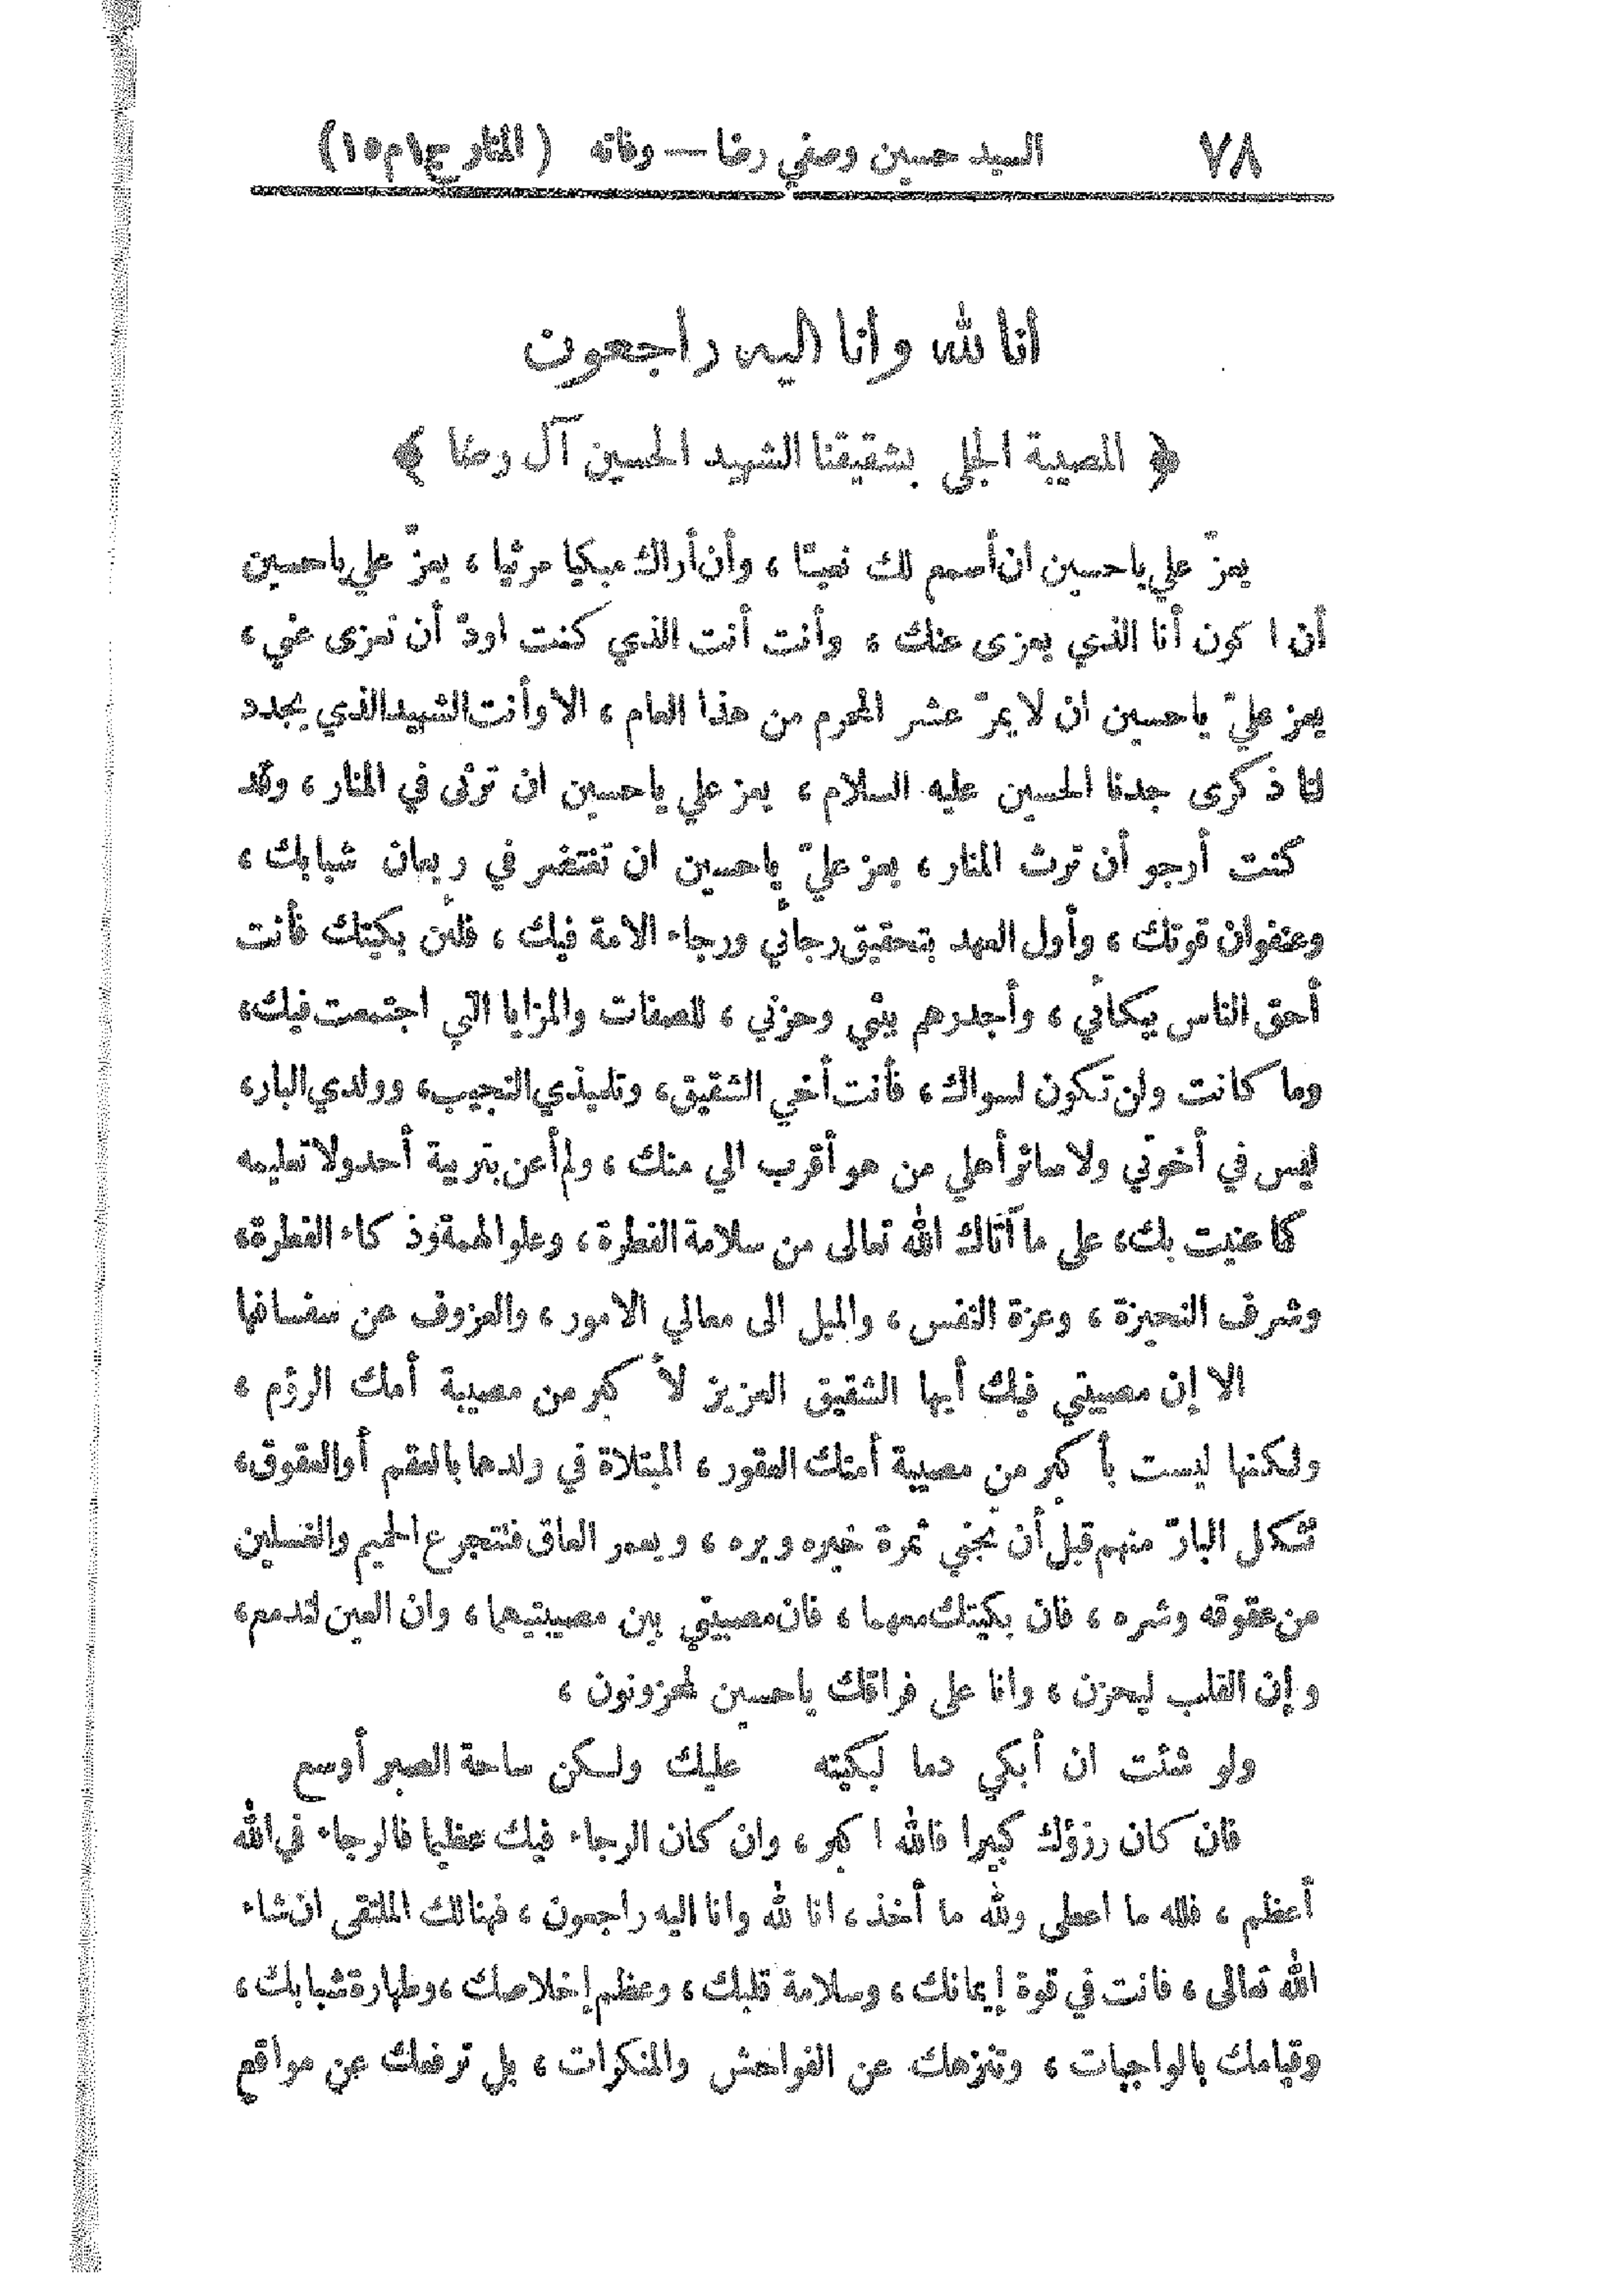 ٧٨ السيد حسين وصفي رضا — وفاته (المنار ج١م١٥)
أنا لله وأنا اليه راجعون
﴿ المصيبة الجلى بشقيقنا الشهيد الحسين آل رضا ﴾
يعزّ علي ياحسين ان أسمع لك نعيّا ، وأن أراك مبكيا مرثيا ، يعزّ علي ياحسين
أن اكون أنا الذي يعزى عنك ، وأنت أنت الذي كنت اودّ أن تعزى عني ،
يعز عليّ ياحسين ان لا يمرّ عشر المحرم من هذا العام ، الا وأنت الشهيد الذي يجدد
لنا ذكرى جدنا الحسين عليه السلام ، يعز علي ياحسين ان ترثى في المنار ، وقد
كنت أرجو أن ترث المنار ، يعز عليّ ياحسين ان تختضر في ريعان شبابك ،
وعنفوان قوتك ، وأول العهد بتحقيق رجائي ورجاء الامة فيك ، فلئن بكيتك فأنت
أحق الناس ببكائي ، وأجدرهم ببثي وحزني ، للصفات والمزايا التي اجتمعت فيك،
وما كانت ولن تكون لسواك ، فأنت أخي الشقيق، وتلميذي النجيب، وولدي البار،
ليس في أخوتي ولا سائر أهلي من هو أقرب الي منك ، ولم أعن بتربية أحد ولا تعليمه
كما عنيت بك، على ما آتاك الله تعالى من سلامة الفطرة ، وعلو الهمة وذكاء الفطرة،
وشرف النحيزة ، وعزة النفس ، والميل الى معالي الامور ، والعزوف عن سفسافها
الا إن مصيبتي فيك أيها الشقيق العزيز لأكبر من مصيبة أمك الرؤم ،
ولكنها ليست بأكبر من مصيبة أمتك العقور ، المبتلاة في ولدها بالعقم أو العقوق،
تثكل البارّ منهم قبل أن تجني ثمرة خيره وبره ، ويعمر العاق فتتجرع الحميم والغسلين
من عقوقه وشره ، فان بكيتك معهما ، فان مصيبتي بين مصيبتيهما ، وان العين لتدمع،
وإن القلب ليحزن ، وانا على فراقك ياحسين لمحزونون ،
ولو شئت ان أبكي دما لبكيته عليك ولكن ساحة الصبر أوسع
فان كان رزؤك كبيرا فالله اكبر ، وان كان الرجاء فيك عظيما فالرجاء في الله
أعظم ، فلله ما اعطى ولله ما أخذ ، انا لله وانا اليه راجعون ، فهنالك الملتقى ان شاء
الله تعالى ، فانت في قوة إيمانك ، وسلامة قلبك ، وعظم إخلاصك ، وطهارة شبابك ،
وقيامك بالواجبات ، وتنزهك عن الفواحش والمنكرات ، بل ترفعك عن مواقع